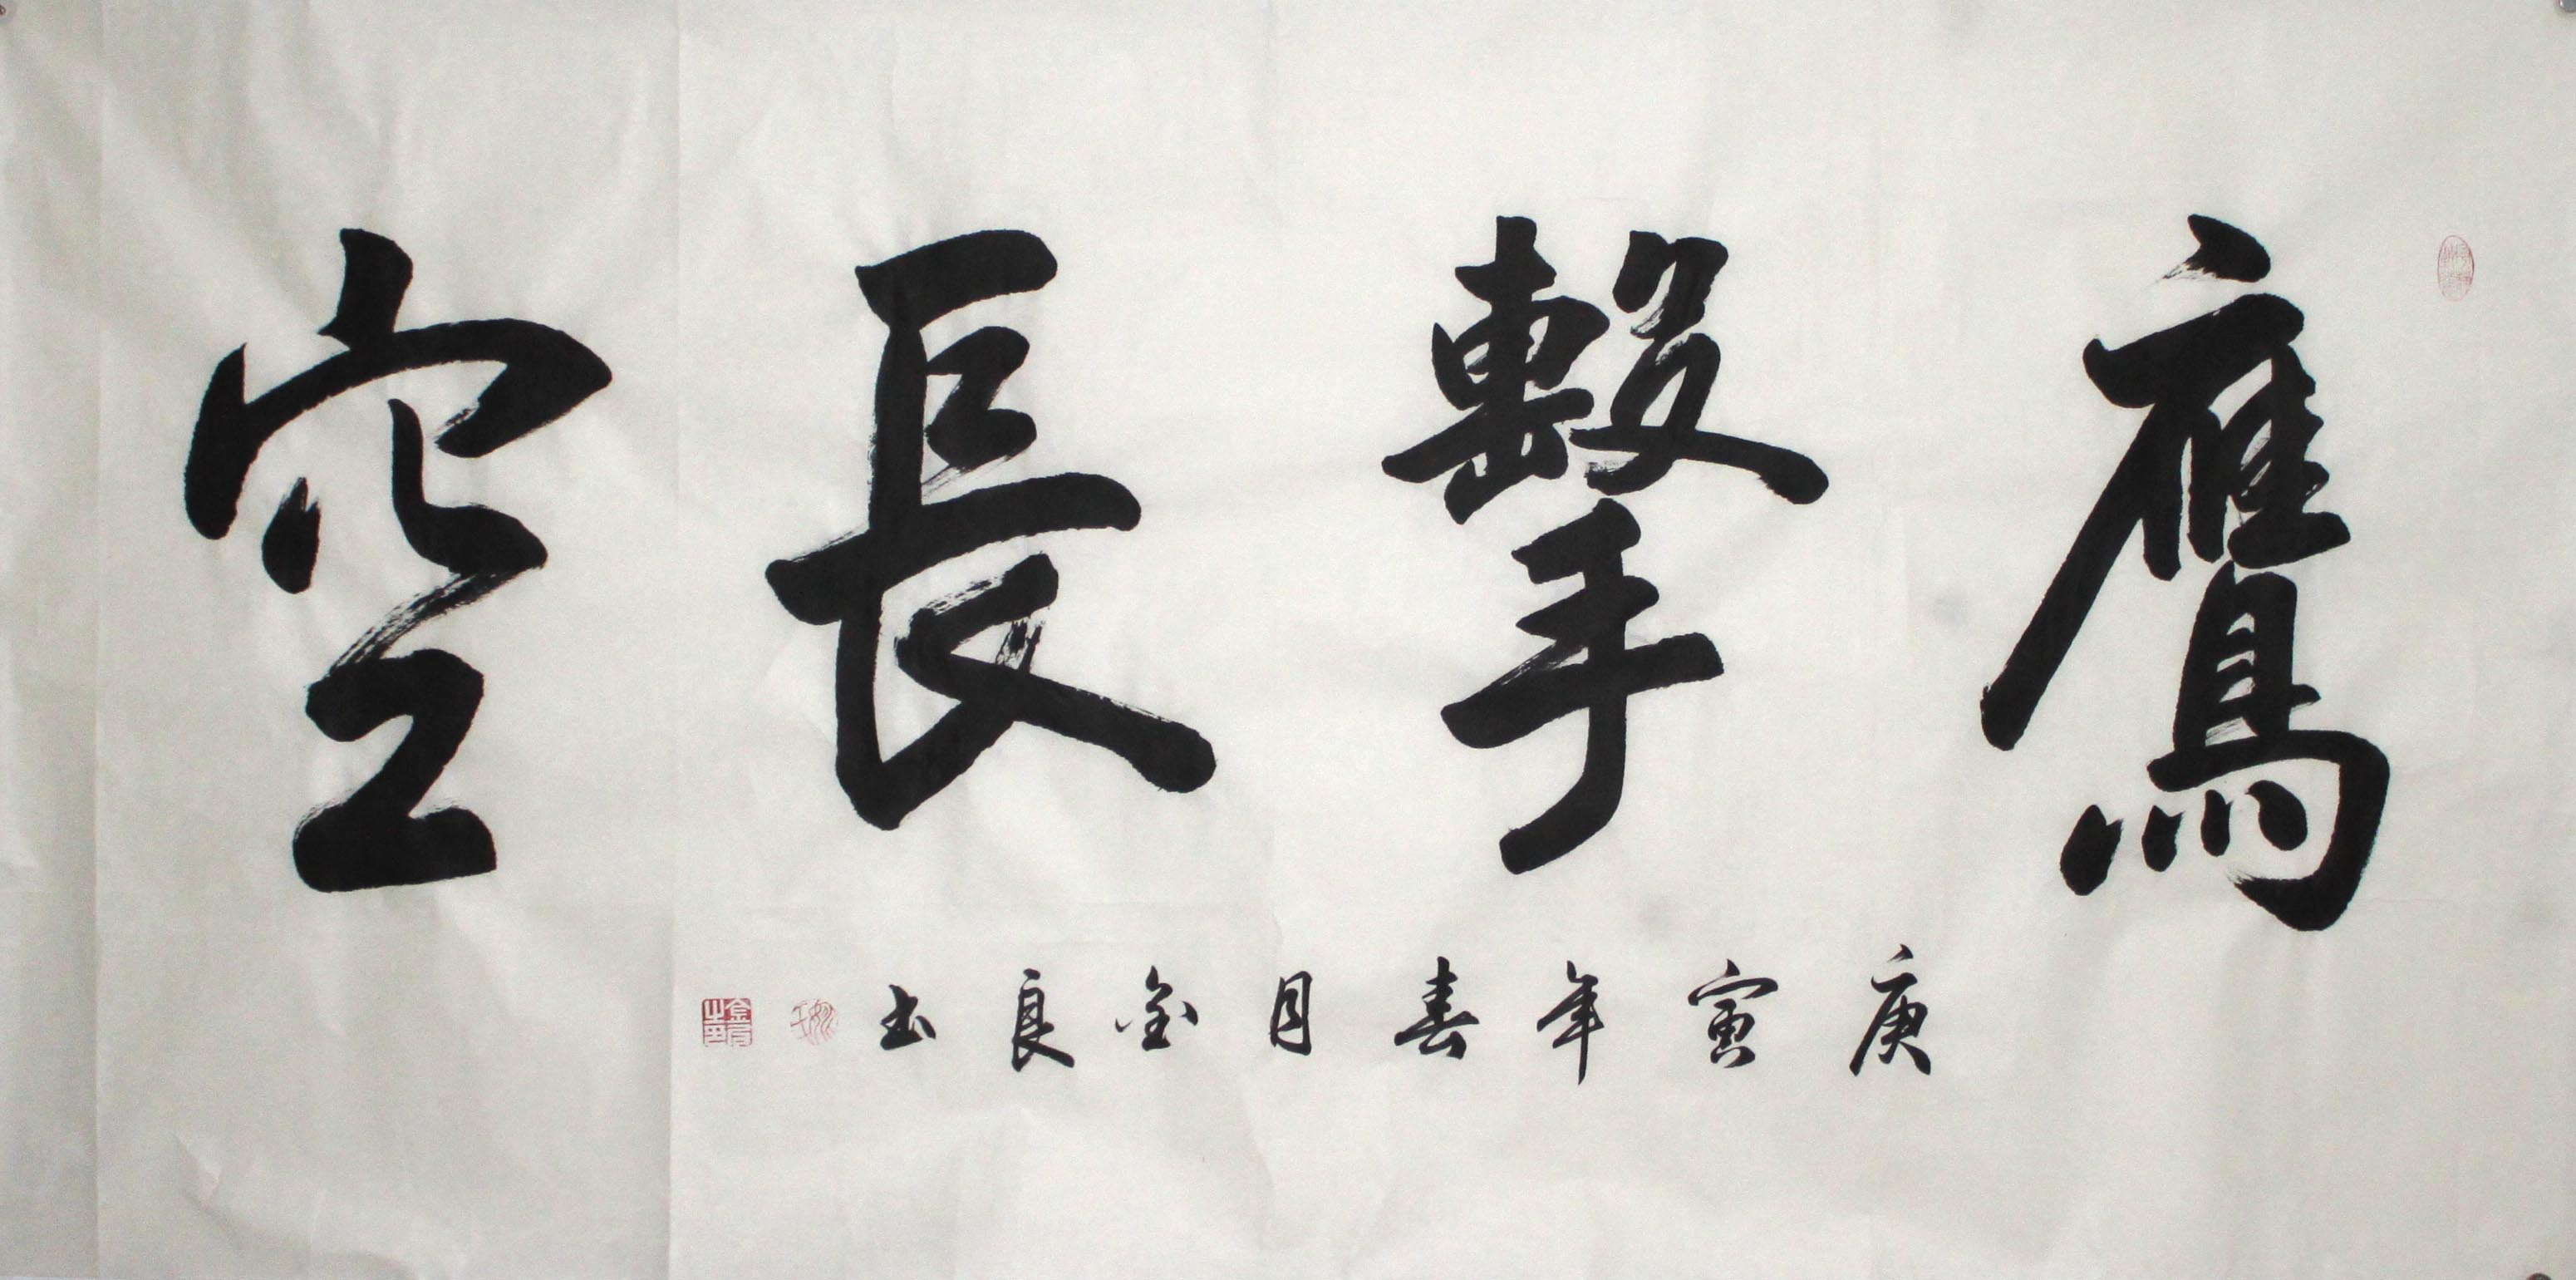 鷹擊長空
庚寅年春月金良书